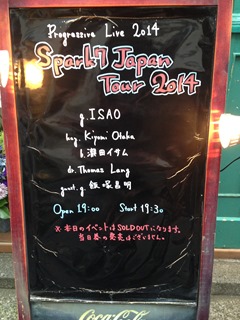 Progressive Live 2014
Spark7 Japan
Tour 2014
g. ISAO
key. Kiyomi Otaka
b. 瀧田イサム
dr. Thomas Lang
guest. g. 飯塚昌明
Open 19:00 Start 19:30
※ 本日のイベントはSOLD OUTになります。
当日券の発売はございません。
Coca-Co